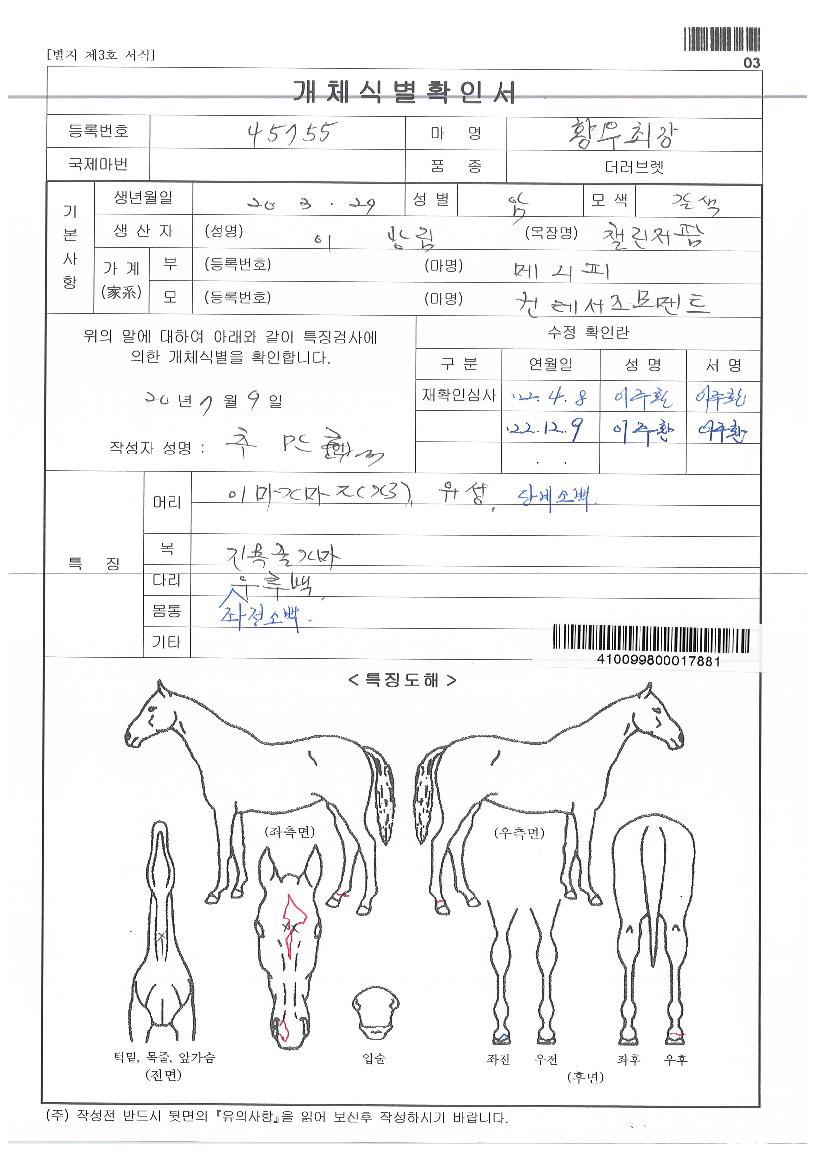 [별지 제3호 서식]
03
개체식별확인서
등록번호 45755 마 명 황우최강
국제마번 품 종 더러브렛
기본사항
생년월일 20 3 . 29 성 별 암 모 색 갈색
생 산 자 (성명) 이 방림 (목장명) 챌린저팜
가 계 (家系) 부 (등록번호) (마명) 메니피
모 (등록번호) (마명) 컨테서즈모멘트
위의 말에 대하여 아래와 같이 특징검사에
의한 개체식별을 확인합니다.
20 년 7 월 9 일
작성자 성명 : 추
수정 확인란
구 분 연월일 성 명 서 명
재확인심사 '22. 4. 8 이주환 이주환
'22. 12. 9 이주환 이주환
. .
특 징
머리 유성, 단비소백
목
다리 우후백
몸통 좌전소백.
기타
410099800017881
< 특징도해 >
(좌측면) (우측면)
턱밑, 목줄, 앞가슴 입술 좌전 우전 좌후 우후
(전면) (후면)
(주) 작성전 반드시 뒷면의 『유의사항』을 읽어 보신후 작성하시기 바랍니다.